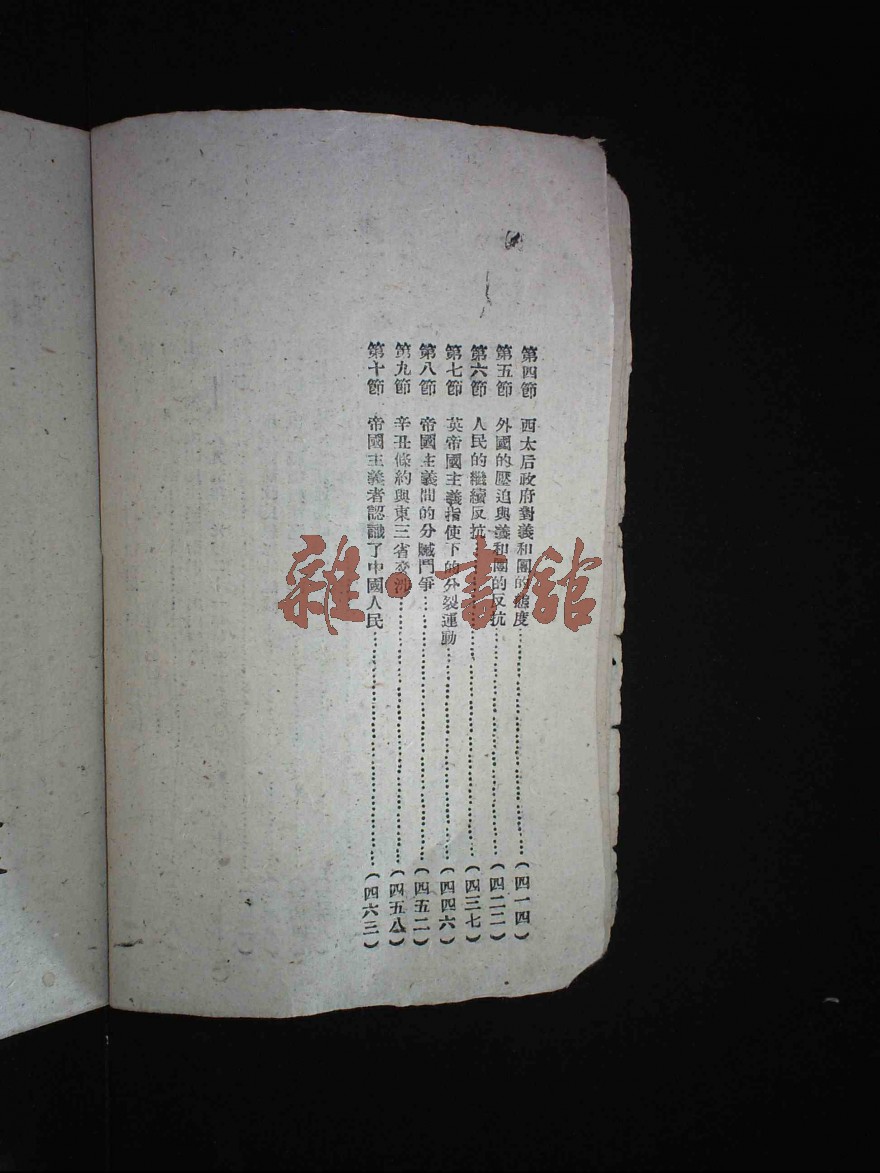 第四節 西太后政府對義和團的態度……………………(四一四)
第五節 外國的壓迫與義和團的反抗……………………(四二二)
第六節 人民的繼續反抗……………………(四三七)
第七節 英帝國主義指使下的分裂運動……………………(四四六)
第八節 帝國主義間的分贓鬥爭……………………(四五二)
第九節 辛丑條約與東三省交涉……………………(四五八)
第十節 帝國主義者認識了中國人民……………………(四六三)
雜·書館